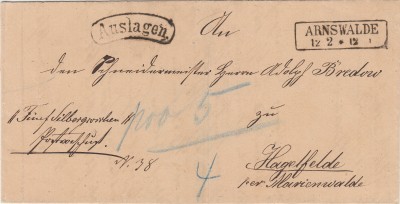 Auslagen.
ARNSWALDE
12 2 * 12
An
den Schneidermeister Herrn Adolph Bredow
zu
Hagelfelde
per Marienwalde
Fünf Silbergroschen
Postvorschuß.
N. 38
pro 5
4